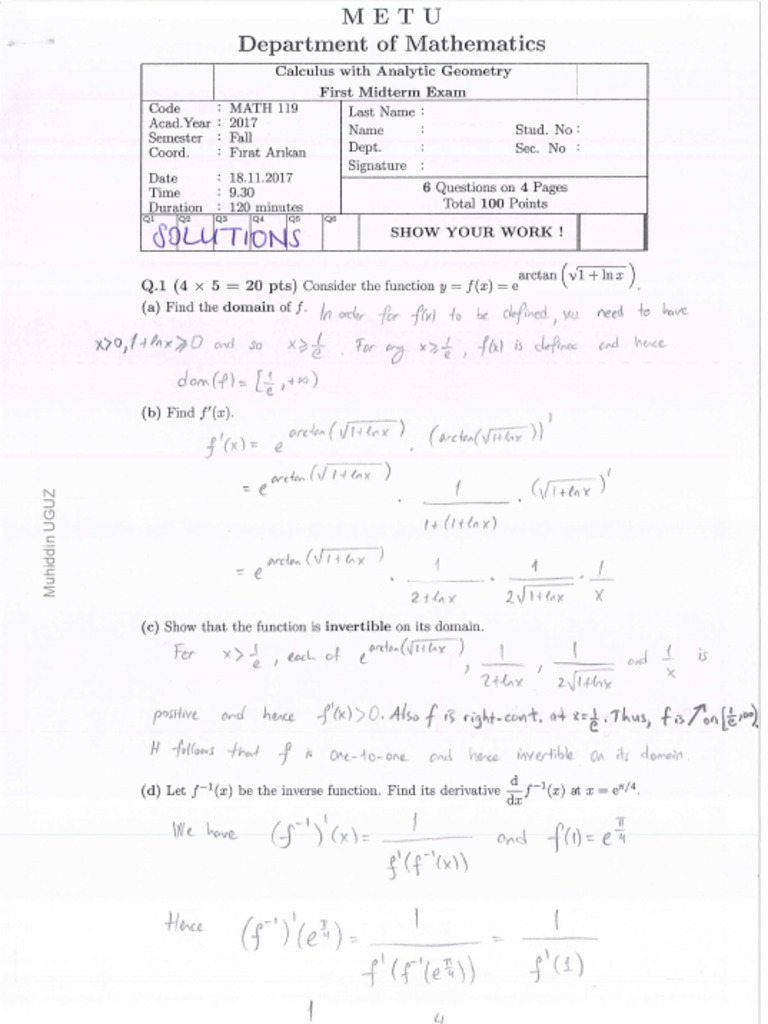 M E T U
Department of Mathematics
Calculus with Analytic Geometry
First Midterm Exam
Code : MATH 119
Acad.Year : 2017
Semester : Fall
Coord. : Fırat Arıkan
Date : 18.11.2017
Time : 9.30
Duration : 120 minutes
Last Name :
Name : Stud. No :
Dept. : Sec. No :
Signature :
6 Questions on 4 Pages
Total 100 Points
Q1 Q2 Q3 Q4 Q5 Q6
SOLUTIONS
SHOW YOUR WORK !
Q.1 (4 × 5 = 20 pts) Consider the function y = f(x) = e^arctan(√(1 + ln x)).
(a) Find the domain of f. In order for f(x) to be defined, we need to have
x>0, 1+lnx ≥ 0 and so x ≥ 1/e. For any x ≥ 1/e, f(x) is defined and hence
dom(f) = [1/e, +∞)
(b) Find f'(x).
f'(x) = e^arctan(√(1+lnx)) · (arctan(√(1+lnx)))'
= e^arctan(√(1+lnx)) · 1/(1+(1+lnx)) · (√(1+lnx))'
= e^arctan(√(1+lnx)) · 1/(2+lnx) · 1/(2√(1+lnx)) · 1/x
Muhiddin UGUZ
(c) Show that the function is invertible on its domain.
For x > 1/e, each of e^arctan(√(1+lnx)), 1/(2+lnx), 1/(2√(1+lnx)) and 1/x is
positive and hence f'(x)>0. Also f is right-cont. at x=1/e. Thus, f is ↗ on [1/e,∞).
It follows that f is one-to-one and hence invertible on its domain.
(d) Let f⁻¹(x) be the inverse function. Find its derivative d/dx f⁻¹(x) at x = e^π/4.
We have (f⁻¹)'(x) = 1/f'(f⁻¹(x)) and f(1) = e^π/4
Hence (f⁻¹)'(e^π/4) = 1/f'(f⁻¹(e^π/4)) = 1/f'(1)
1 4